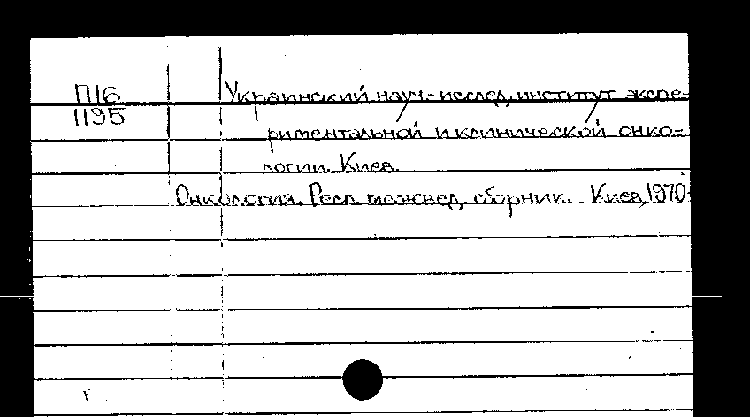 П16
1195
Украинский науч.-исслед. институт экспе-
риментальной и клинической онко-
логии. Киев.
Онкология. Респ. межвед. сборник. Киев, 1970-